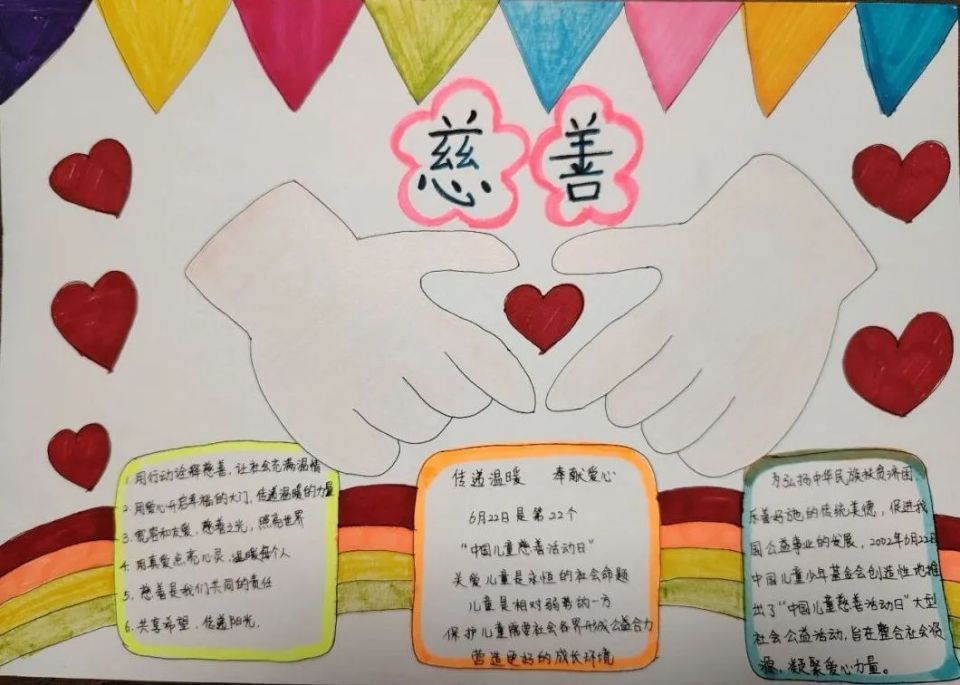 慈善
1. 用行动诠释慈善，让社会充满温情
2. 用爱心开启幸福的大门，传递温暖的力量
3. 宽容和友爱，慈善之光，照亮世界
4. 用真爱点亮心灵，温暖每个人
5. 慈善是我们共同的责任
6. 共享希望，传递阳光．
传递温暖 奉献爱心
6月22日是第22个
“中国儿童慈善活动日”
关爱儿童是永恒的社会命题
儿童是相对弱势的一方
保护儿童需要社会各界形成公益合力
营造更好的成长环境
为弘扬中华民族扶贫济困
乐善好施的传统美德，促进我
国公益事业的发展，2002年6月22日
中国儿童少年基金会创造性地推
出了“中国儿童慈善活动日”大型
社会公益活动，旨在整合社会资
源，凝聚爱心力量。